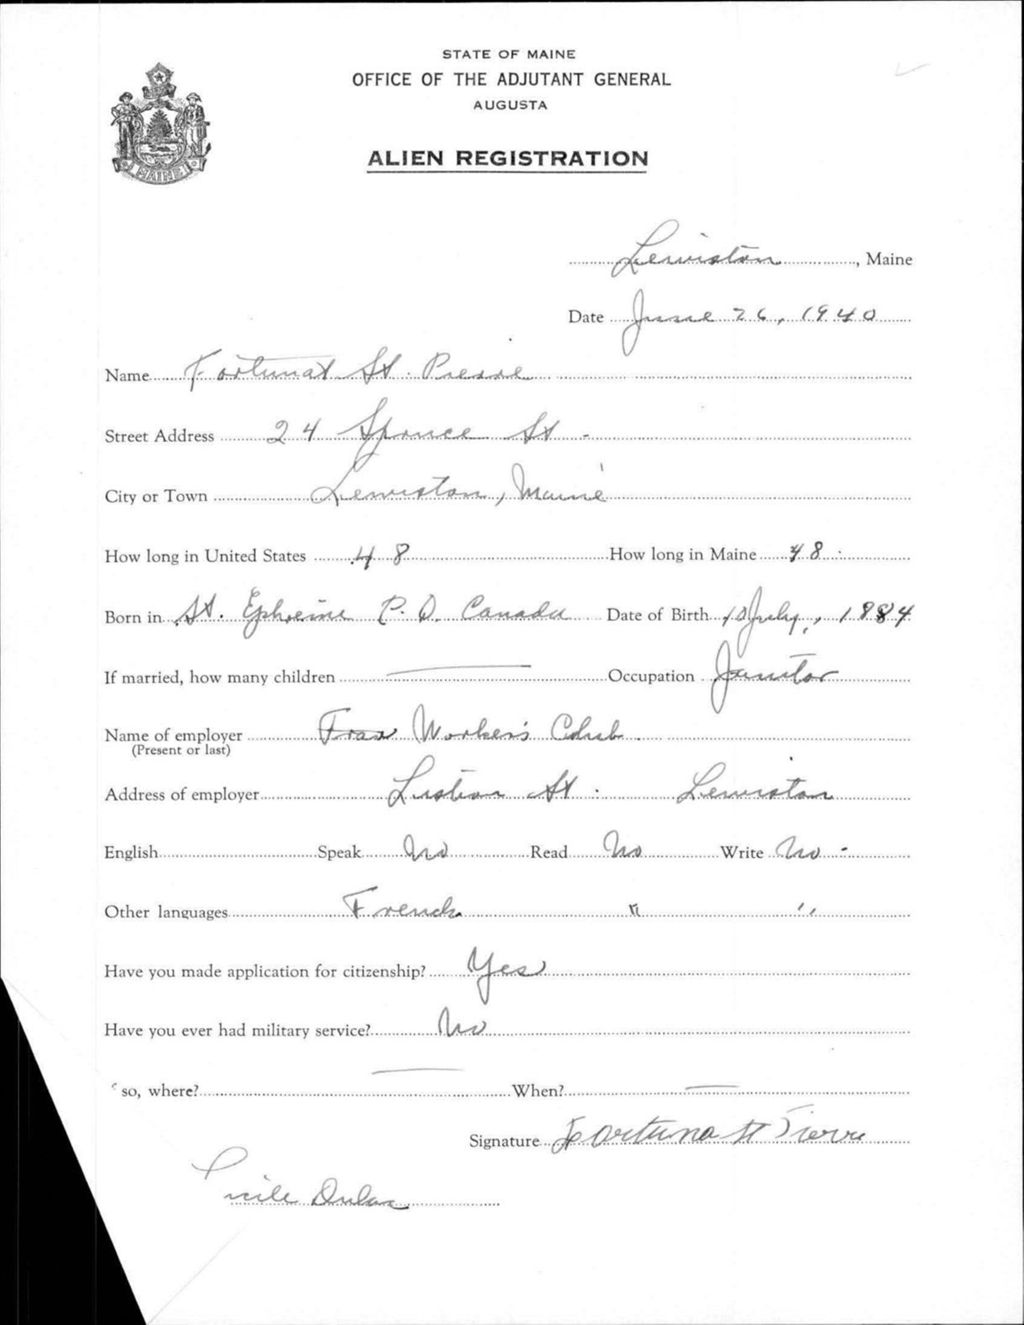 STATE OF MAINE
OFFICE OF THE ADJUTANT GENERAL
AUGUSTA
MAINE
ALIEN REGISTRATION
Lewiston, Maine
Date June 26, 1940
Name Fortunat St. Pierre
Street Address 24 Spruce St
City or Town Lewiston, Maine
How long in United States 48 How long in Maine 48
Born in St. Ephreme P. Q. Canada Date of Birth 10 July, 1884
If married, how many children — Occupation Janitor
Name of employer Workers Club
(Present or last)
Address of employer St. Lewiston
English Speak No Read No Write No
Other languages French " "
Have you made application for citizenship? Yes
Have you ever had military service? No
so, where? — When? —
Signature Fortuna St Pierre
Lucile Dulac